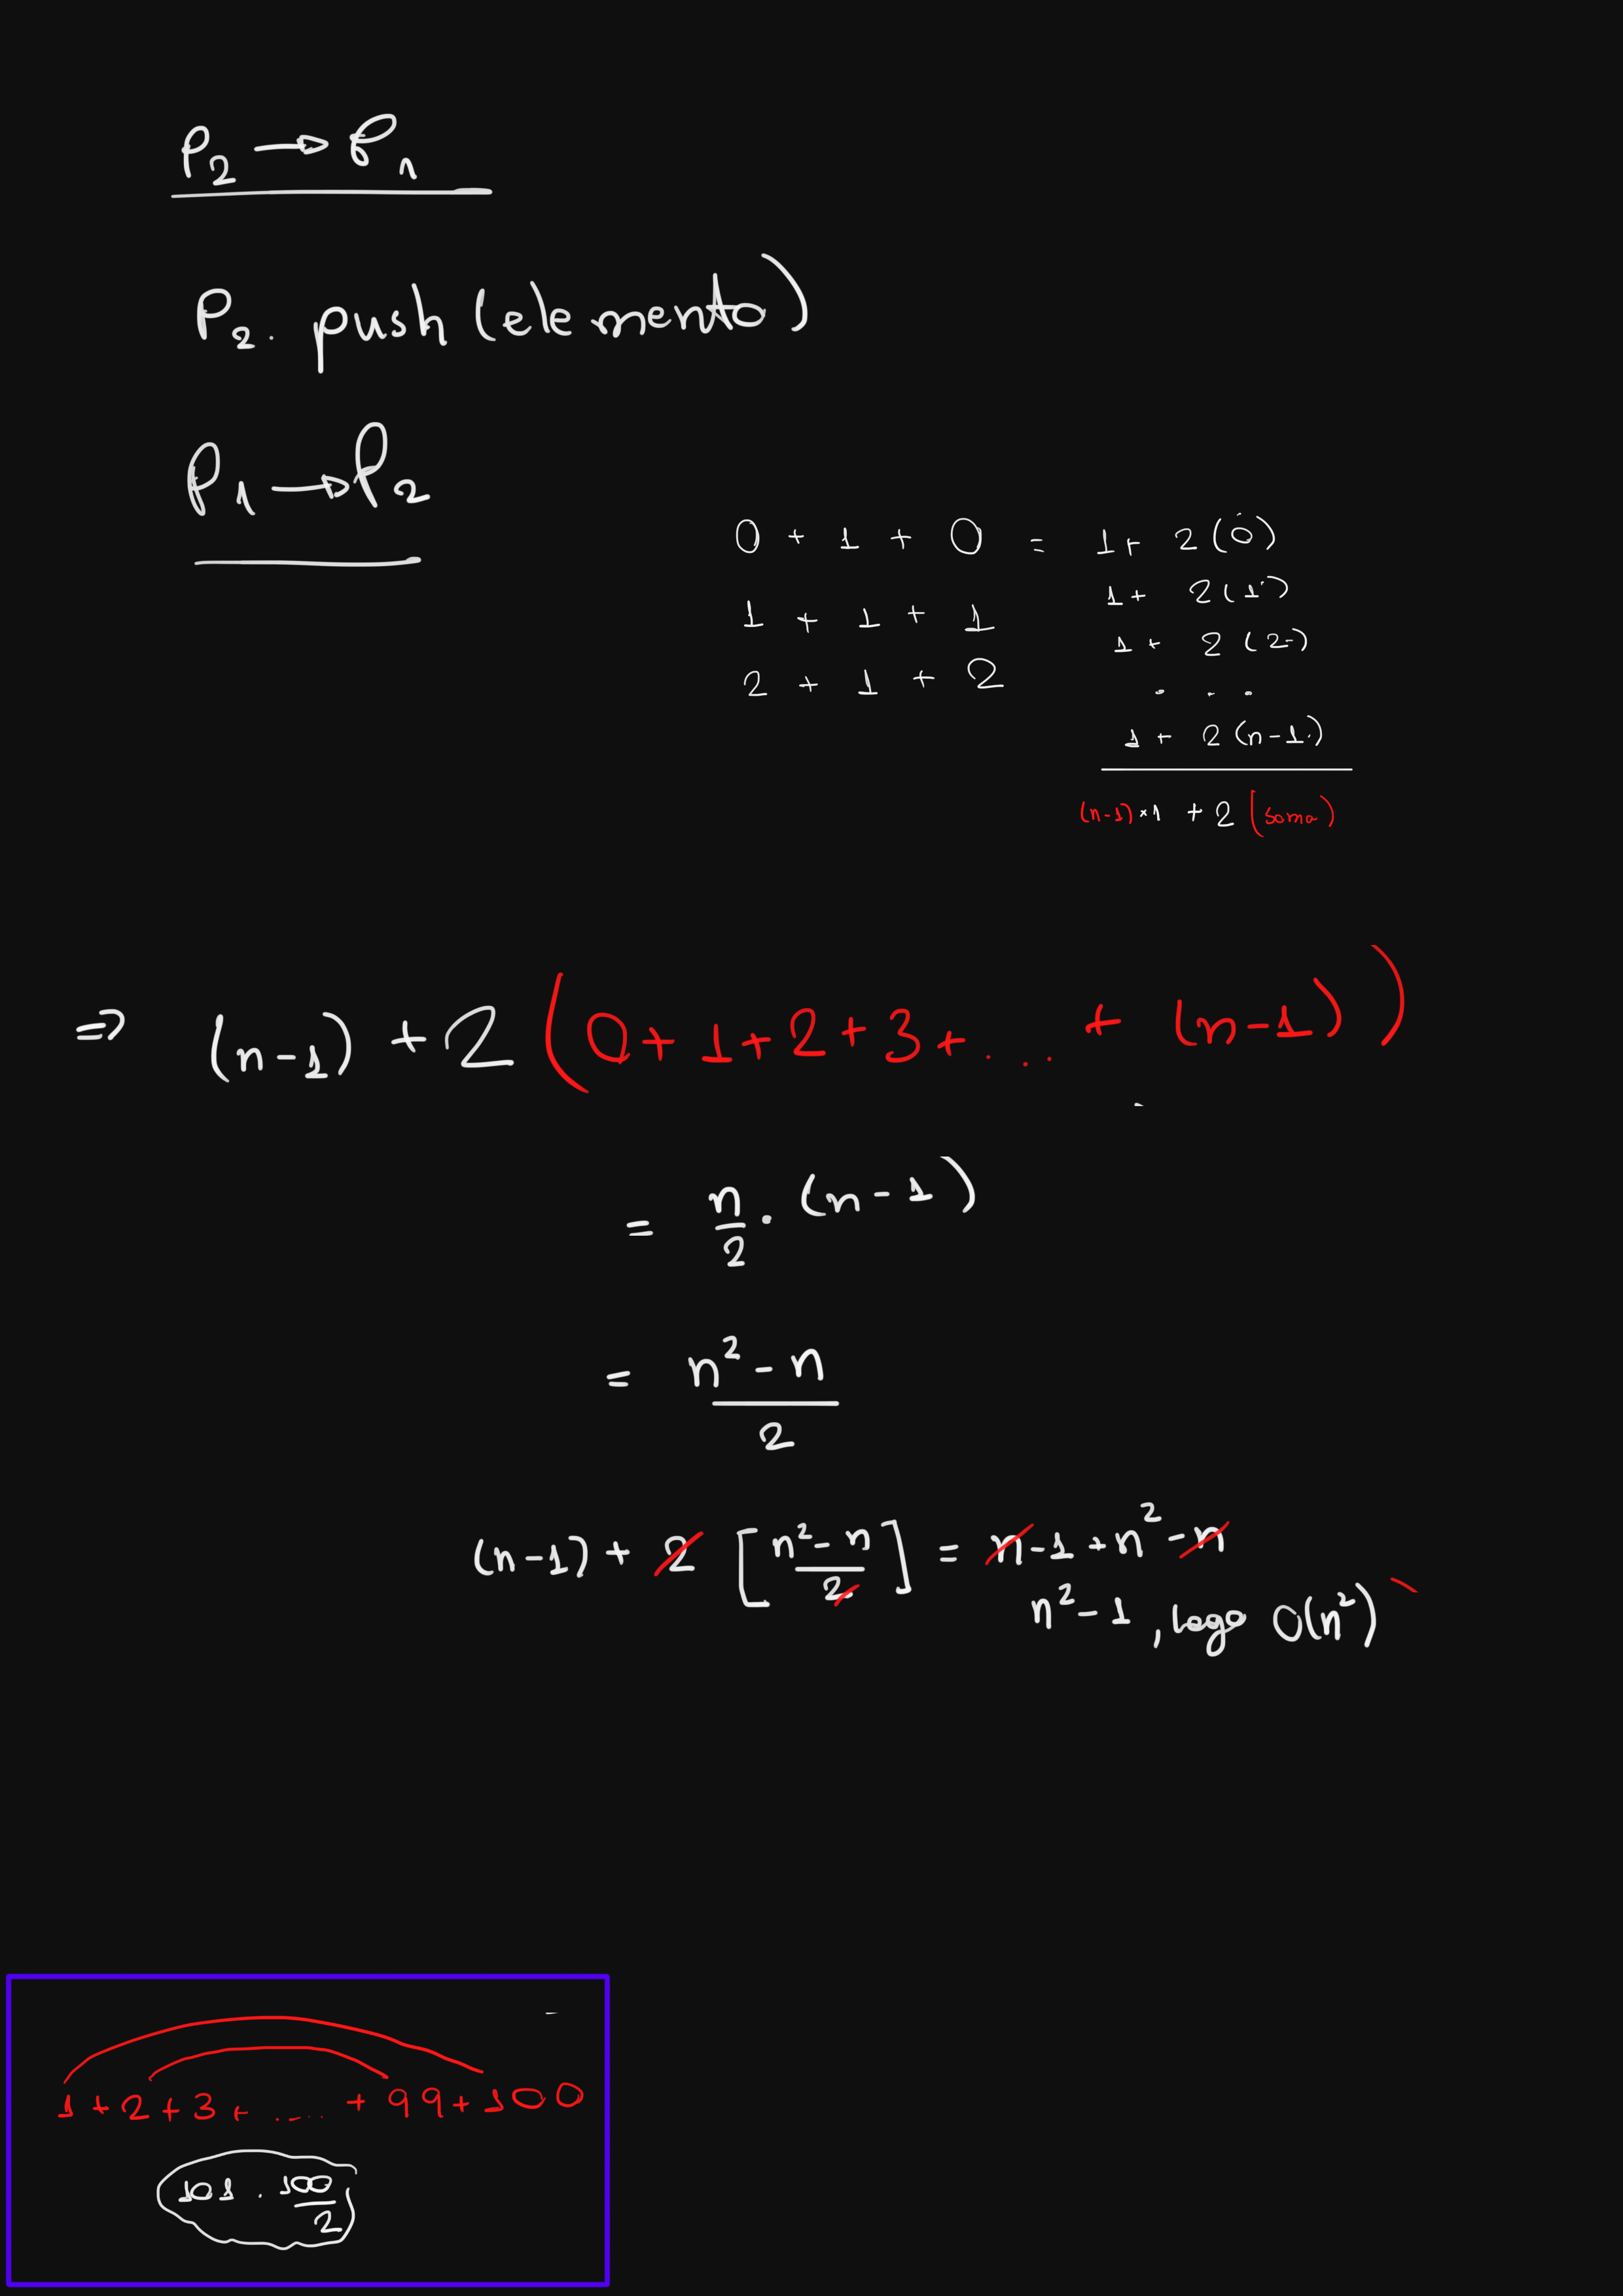 P₂ → P₁
P₂. push (elemento)
P₁ → P₂
0 + 1 + 0 = 1 + 2 (0)
1 + 1 + 1 1 + 2 (1)
2 + 1 + 2 1 + 2 (2)
. . .
1 + 2 (n-1)
(n-1) × 1 + 2 (soma)
⇒ (n-1) + 2 (0 + 1 + 2 + 3 + ... + (n-1))
= n/2 · (n-1)
= n² - n / 2
(n-1) + 2 [n² - n / 2] = n - 1 + n² - n
n² - 1, logo O(n²)
1 + 2 + 3 + ..... + 99 + 100
101 . 100/2